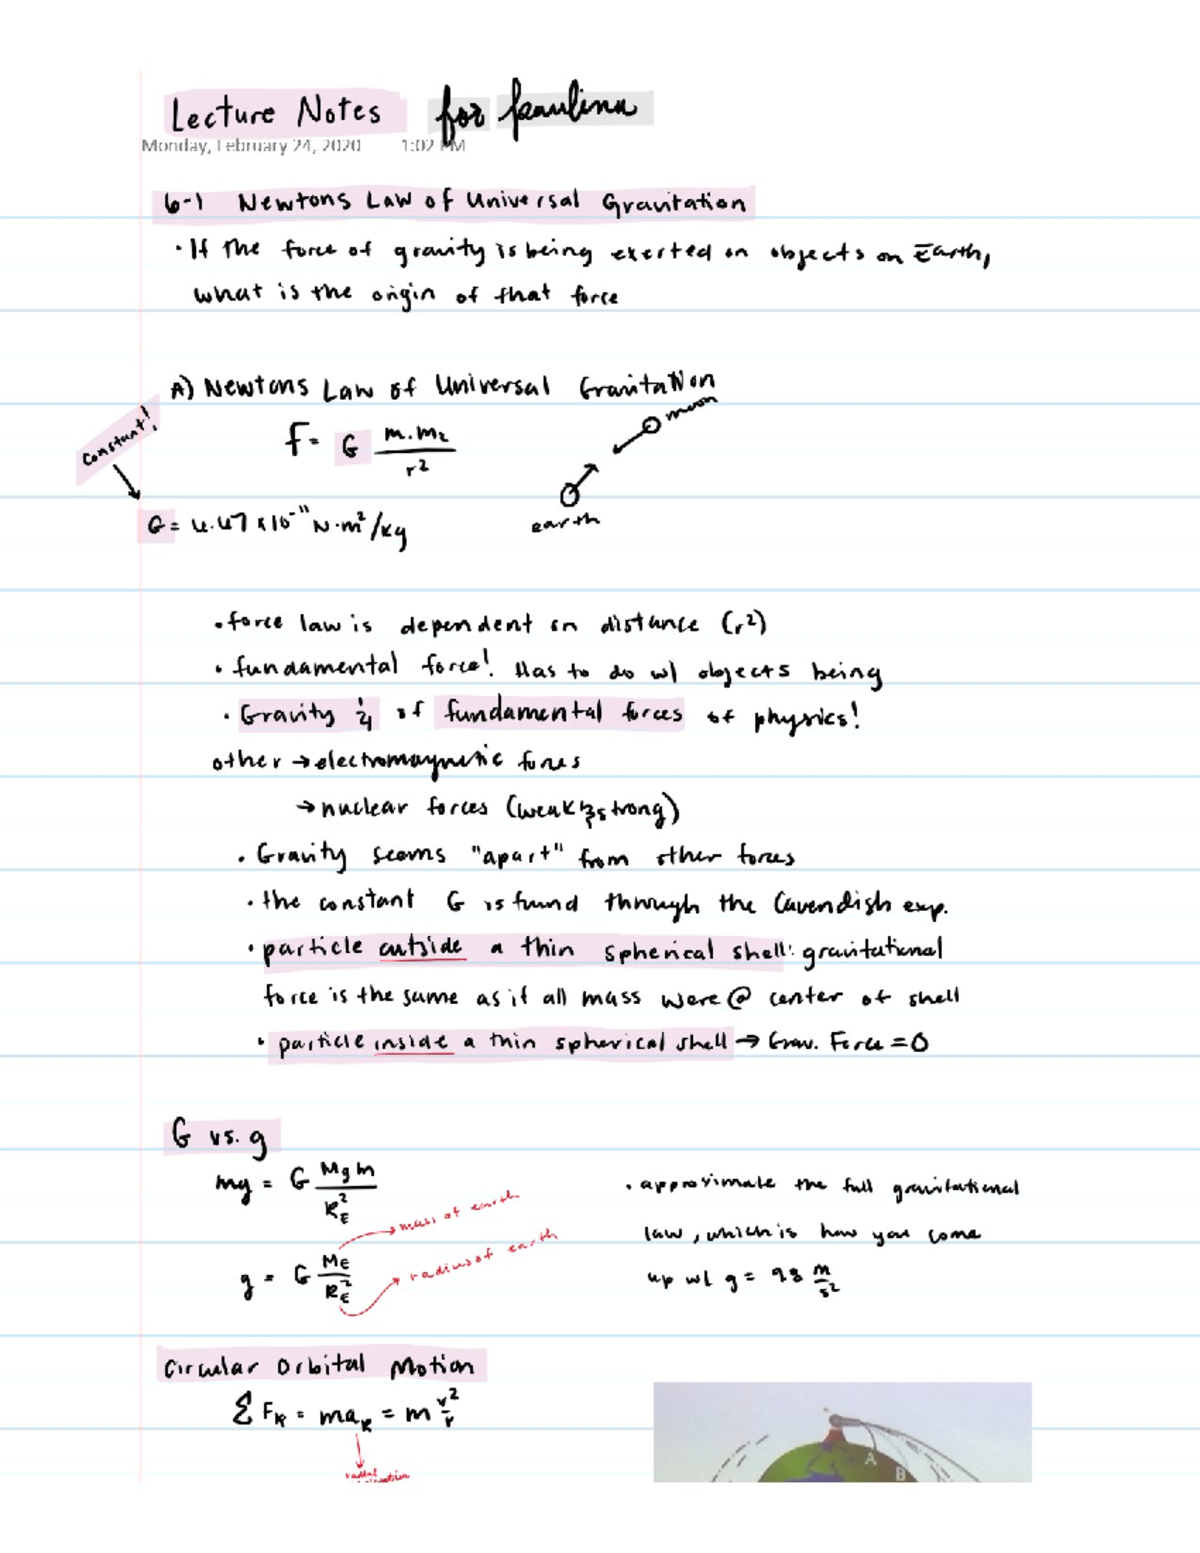 Lecture Notes for Paulina
Monday, February 24, 2020 1:02 PM
6-1 Newtons Law of Universal Gravitation
• If the force of gravity is being exerted on objects on Earth,
what is the origin of that force
A) Newtons Law of Universal Gravitation
moon
Constant!
F = G m₁m₂ / r²
earth
G = 6.67 x 10⁻¹¹ N·m²/kg
• force law is dependent on distance (r²)
• fundamental force! Has to do w/ objects being
• Gravity 1/4 of fundamental forces of physics!
other → electromagnetic forces
→ nuclear forces (weak & strong)
• Gravity seems "apart" from other forces
• the constant G is found through the Cavendish exp.
• particle outside a thin spherical shell: gravitational
force is the same as if all mass were @ center of shell
• particle inside a thin spherical shell → Grav. Force = 0
G vs. g
mg = G MEm / RE²
• approximate the full gravitational
→ mass of earth
law, which is how you come
→ radius of earth
g = G ME / RE²
up w/ g = 9.8 m/s²
Circular Orbital Motion
Σ FR = maR = m v²/r
A
B
radial